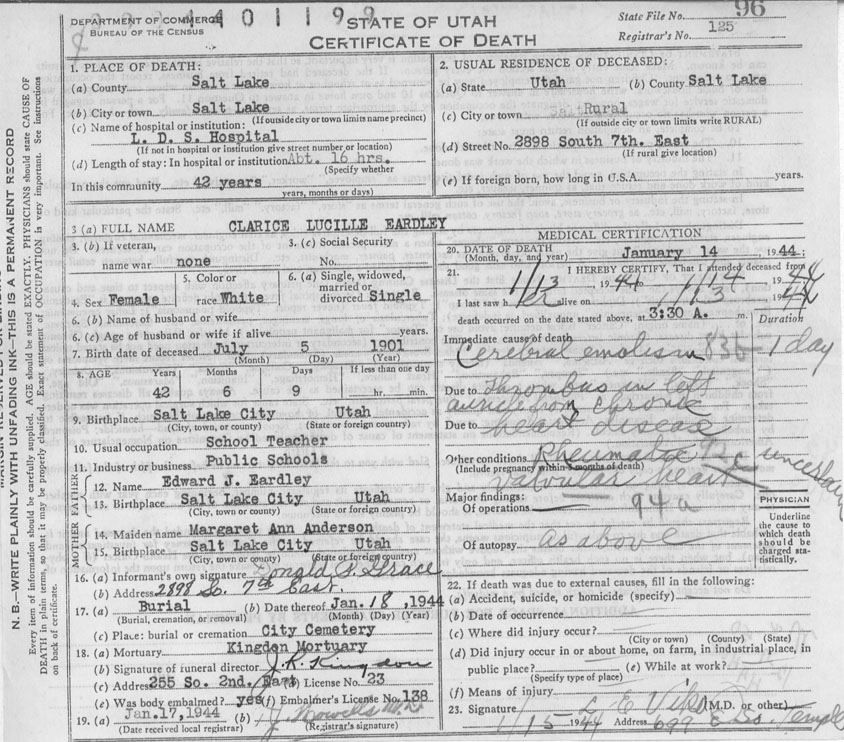 DEPARTMENT OF COMMERCE
BUREAU OF THE CENSUS
401199
STATE OF UTAH
CERTIFICATE OF DEATH
State File No. 96
Registrar's No. 125
N. B.—WRITE PLAINLY WITH UNFADING INK—THIS IS A PERMANENT RECORD
Every item of information should be carefully supplied. AGE should be stated EXACTLY. PHYSICIANS should state CAUSE OF
DEATH in plain terms, so that it may be properly classified. Exact statement of OCCUPATION is very important. See instructions
on back of certificate.
1. PLACE OF DEATH:
(a) County Salt Lake
(b) City or town Salt Lake
(If outside city or town limits name precinct)
(c) Name of hospital or institution:
L. D. S. Hospital
(If not in hospital or institution give street number or location)
(d) Length of stay: In hospital or institution Abt. 16 hrs.
(Specify whether
In this community 42 years
years, months or days)
2. USUAL RESIDENCE OF DECEASED:
(a) State Utah (b) County Salt Lake
(c) City or town Rural
(If outside city or town limits write RURAL)
(d) Street No. 2898 South 7th. East
(If rural give location)
(e) If foreign born, how long in U.S.A. years.
3 (a) FULL NAME CLARICE LUCILLE EARDLEY
3. (b) If veteran,
name war none
3. (c) Social Security
No.
4. Sex Female
5. Color or
race White
6. (a) Single, widowed,
married or
divorced Single
6. (b) Name of husband or wife
6. (c) Age of husband or wife if alive years.
7. Birth date of deceased July 5 1901
(Month) (Day) (Year)
8. AGE Years Months Days If less than one day
42 6 9 hr. min.
9. Birthplace Salt Lake City Utah
(City, town, or county) (State or foreign country)
10. Usual occupation School Teacher
11. Industry or business Public Schools
FATHER
12. Name Edward J. Eardley
13. Birthplace Salt Lake City Utah
(City, town or county) (State or foreign country)
MOTHER
14. Maiden name Margaret Ann Anderson
15. Birthplace Salt Lake City Utah
(City, town or county) (State or foreign country)
16. (a) Informant's own signature Donald S. Grace
(b) Address 2898 So. 7th East.
17. (a) Burial (b) Date thereof Jan. 18, 1944
(Burial, cremation, or removal) (Month) (Day) (Year)
(c) Place: burial or cremation City Cemetery
18. (a) Mortuary Kingdon Mortuary
(b) Signature of funeral director J. R. Kingdon
(c) Address 255 So. 2nd. East (d) License No. 23
(e) Was body embalmed? yes (f) Embalmer's License No. 138
19. (a) Jan.17, 1944 (b)
(Date received local registrar) (Registrar's signature)
MEDICAL CERTIFICATION
20. DATE OF DEATH January 14, 1944:
(Month, day, and year)
21. I HEREBY CERTIFY, That I attended deceased from
1/13 1944 to 1/14 1944
I last saw her alive on 1/13 1944
death occurred on the date stated above, at 3:30 A. m.
Duration
Immediate cause of death
Cerebral emolism 83b 1 day
Due to Thrombus in left
auricle from chronic
Due to heart disease
Other conditions Rheumatic uncertain
(Include pregnancy within 3 months of death)
valvular heart
Major findings:
Of operations 94a
Of autopsy as above
PHYSICIAN
Underline
the cause to
which death
should be
charged sta-
tistically.
22. If death was due to external causes, fill in the following:
(a) Accident, suicide, or homicide (specify)
(b) Date of occurrence
(c) Where did injury occur?
(City or town) (County) (State)
(d) Did injury occur in or about home, on farm, in industrial place, in
public place? (e) While at work?
(Specify type of place)
(f) Means of injury
23. Signature L E Viko (M.D. or other)
1/15 1944 Address 699 E So. Temple